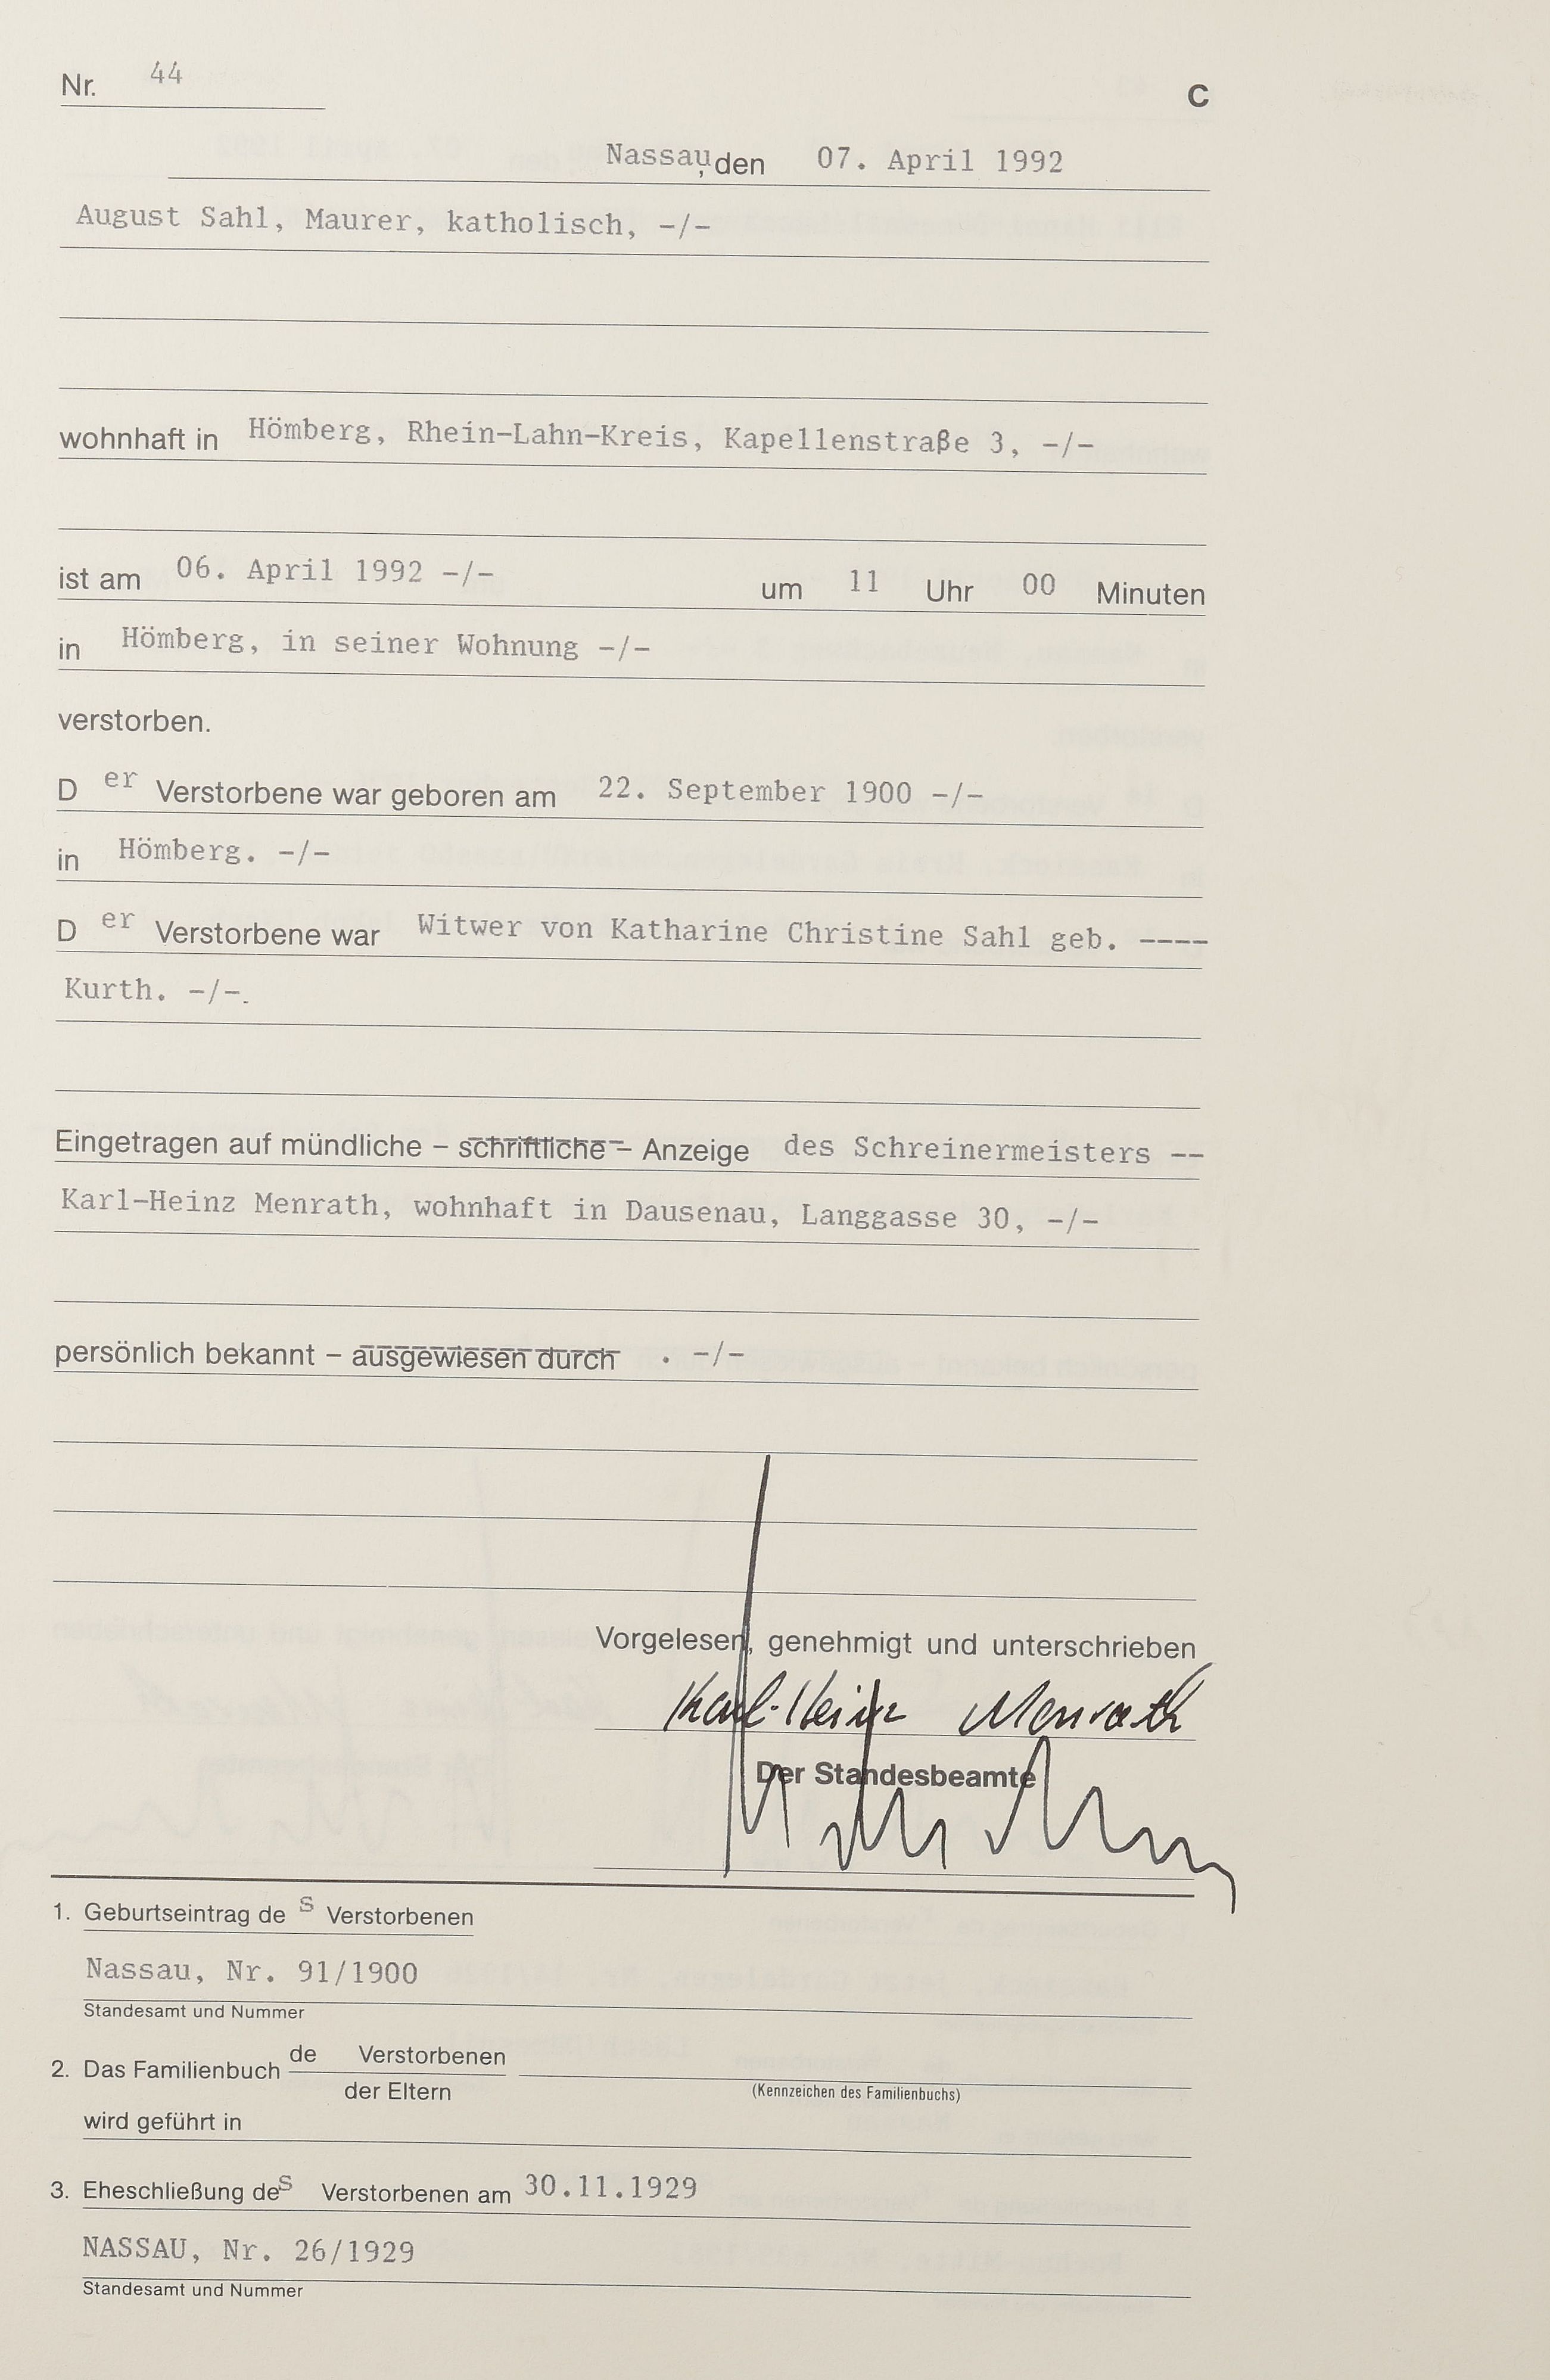 Nr. 44
C
Nassau, den 07. April 1992
August Sahl, Maurer, katholisch, -/-
wohnhaft in Hömberg, Rhein-Lahn-Kreis, Kapellenstraße 3, -/-
ist am 06. April 1992 -/- um 11 Uhr 00 Minuten
in Hömberg, in seiner Wohnung -/-
verstorben.
D er Verstorbene war geboren am 22. September 1900 -/-
in Hömberg. -/-
D er Verstorbene war Witwer von Katharine Christine Sahl geb. ----
Kurth. -/-.
Eingetragen auf mündliche – schriftliche – Anzeige des Schreinermeisters --
Karl-Heinz Menrath, wohnhaft in Dausenau, Langgasse 30, -/-
persönlich bekannt – ausgewiesen durch . -/-
Vorgelesen, genehmigt und unterschrieben
Karl-Heinz Menrath
Der Standesbeamte
1. Geburtseintrag de s Verstorbenen
Nassau, Nr. 91/1900
Standesamt und Nummer
2. Das Familienbuch de Verstorbenen
der Eltern
(Kennzeichen des Familienbuchs)
wird geführt in
3. Eheschließung des Verstorbenen am 30.11.1929
NASSAU, Nr. 26/1929
Standesamt und Nummer